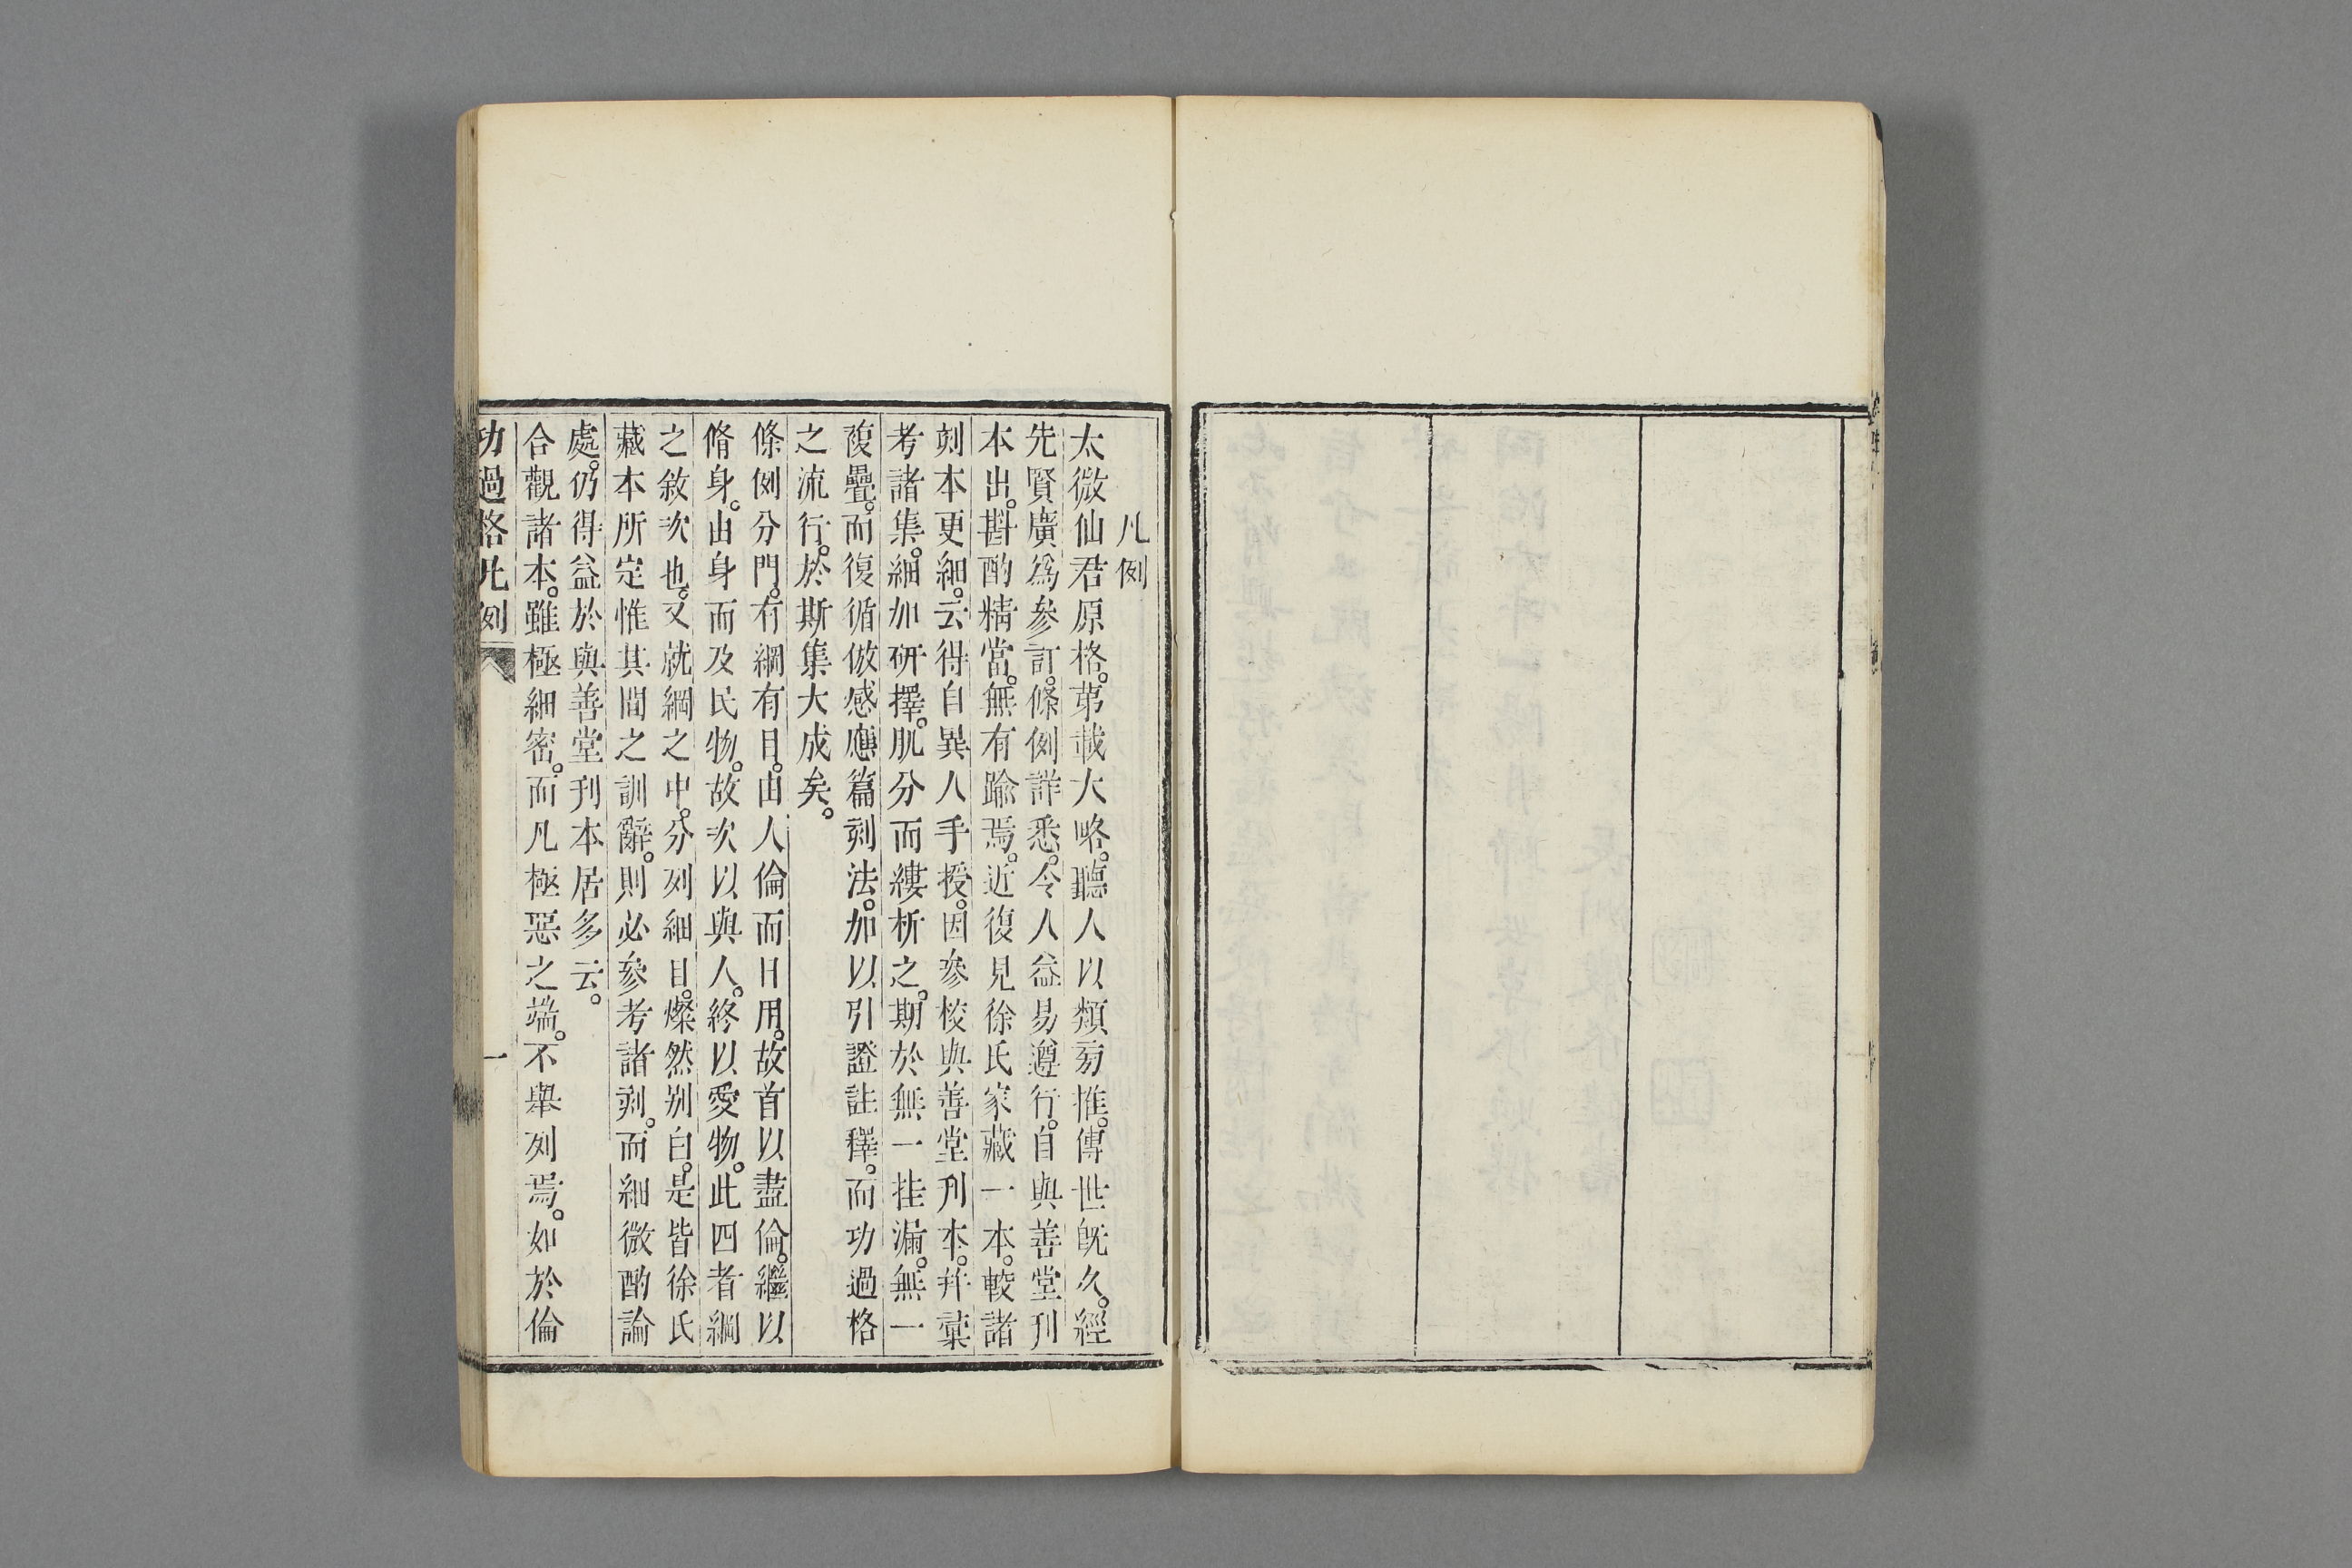 凡例
太微仙君原格。苐載大略。聽人以類旁推。傳世旣久。經
先賢廣爲參訂。條例詳悉。令人益易遵行。自與善堂刊
本出。斟酌精當。無有踰焉。近復見徐氏家藏一本。較諸
刻本更細。云得自異人手授。因參校與善堂刊本。幷彙
考諸集。細加研擇。肌分而縷析之。期於無一挂漏。無一
複疊。而復循倣感應篇刻法。加以引證註釋。而功過格
之流行。於斯集大成矣。
條例分門。有綱有目。由人倫而日用。故首以盡倫。繼以
脩身。由身而及民物。故次以與人。終以愛物。此四者綱
之敘次也。又就綱之中。分列細目。燦然别白。是皆徐氏
藏本所定惟其間之訓辭。則必參考諸刻。而細微酌論
處。仍得益於與善堂刊本居多云。
合觀諸本。雖極細密。而凡極惡之端。不舉列焉。如於倫
功過格凡例 一